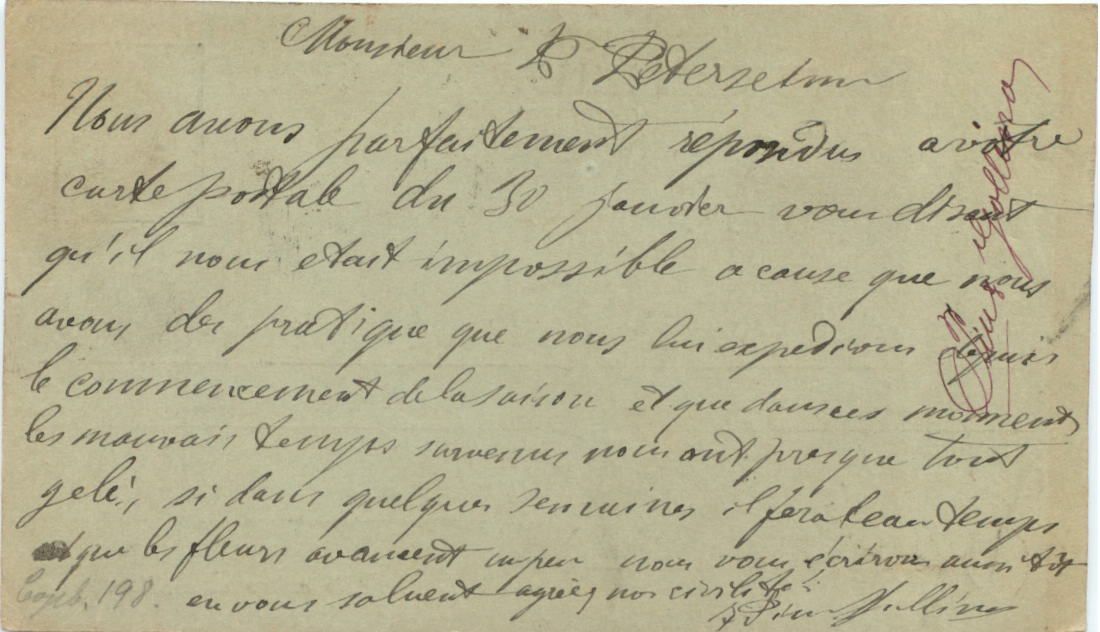 Monsieur P Peterseim
Nous avons parfaitement répondus a votre
carte postale du 30 janvier vous disant
qu'il nous etait impossible a cause que nous
avons des pratique que nous lui expedions depuis
le commencement de la saison et que dans ces moments
les mauvais temps survenus nous ont presque tout
gelé, si dans quelques semaines il fera beau temps
et que les fleurs avancent un peu nous vous écrirons aussitôt
en vous saluent agréez nos civilité
198.